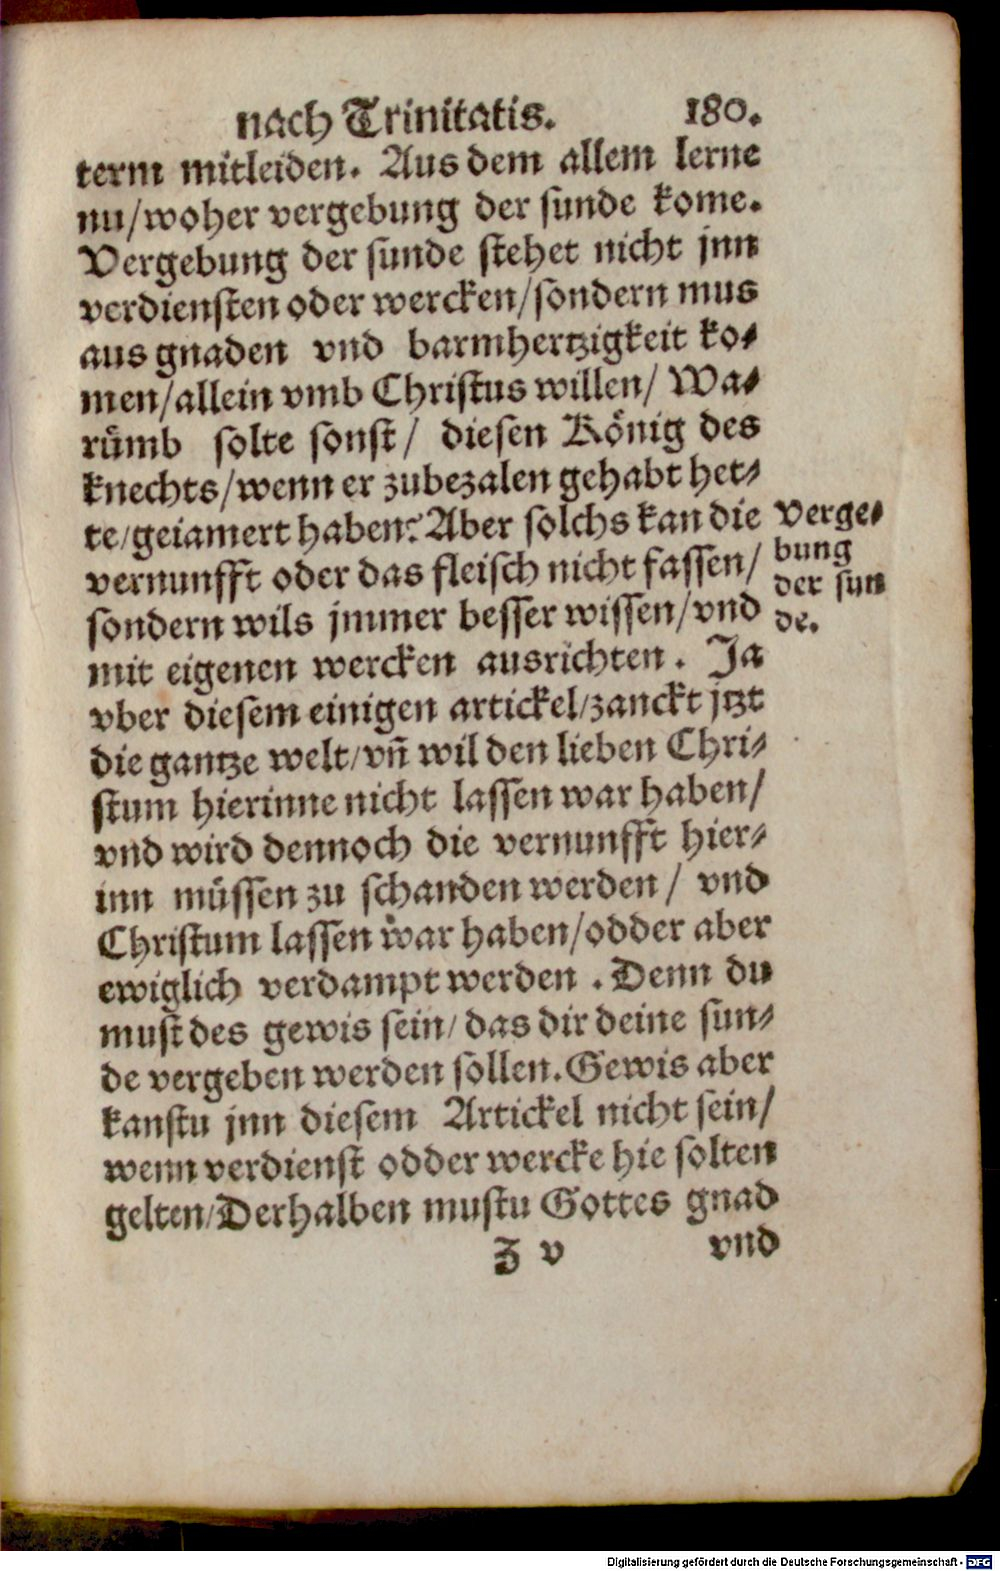 nach Trinitatis. 180.
term mitleiden. Aus dem allem lerne
nu/woher vergebung der sunde kome.
Vergebung der sunde stehet nicht jnn
verdiensten oder wercken/sondern mus
aus gnaden vnd barmhertzigkeit ko-
men/allein vmb Christus willen/ Wa-
rümb solte sonst/ diesen König des
knechts/wenn er zubezalen gehabt het-
te/geiamert haben? Aber solchs kan die
vernunfft oder das fleisch nicht fassen/
sondern wils jmmer besser wissen/vnd
mit eigenen wercken ausrichten. Ja
vber diesem einigen artickel/zanckt jtzt
die gantze welt/vn̄ wil den lieben Chri-
stum hierinne nicht lassen war haben/
vnd wird dennoch die vernunfft hier-
inn müssen zu schanden werden/ vnd
Christum lassen war haben/odder aber
ewiglich verdampt werden. Denn du
must des gewis sein/das dir deine sun-
de vergeben werden sollen. Gewis aber
kanstu jnn diesem Artickel nicht sein/
wenn verdienst odder wercke hie solten
gelten/Derhalben mustu Gottes gnad
Z v vnd
Verge-
bung
der sun
de.
Digitalisierung gefördert durch die Deutsche Forschungsgemeinschaft - DFG